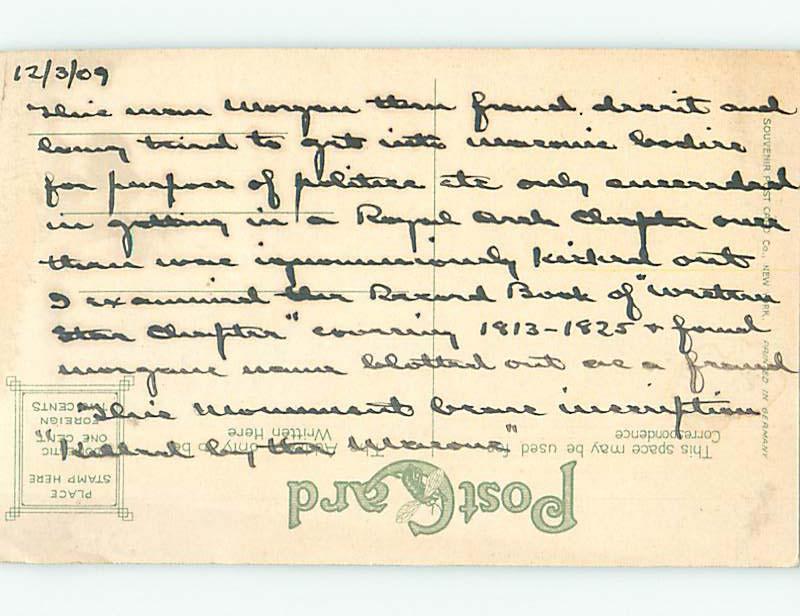 12/3/09
This man Morgan then fraud. deceit and
lying tried to get into masonic bodies
for purpose of politics etc only succeeded
in getting in a Royal Arch Chapter over
then was ignominiously kicked out
I examined the Record Book of "Western
Star Chapter" covering 1813-1825 + found
morgans name blotted out as a fraud
This Monument bears inscription
"Killed by the Masons"
SOUVENIR POST CARD CO., NEW YORK. PRINTED IN GERMANY
PostCard
This space may be used for
Correspondence
The Address only to be
Written Here
PLACE
STAMP HERE
DOMESTIC
ONE CENT
FOREIGN
TWO CENTS